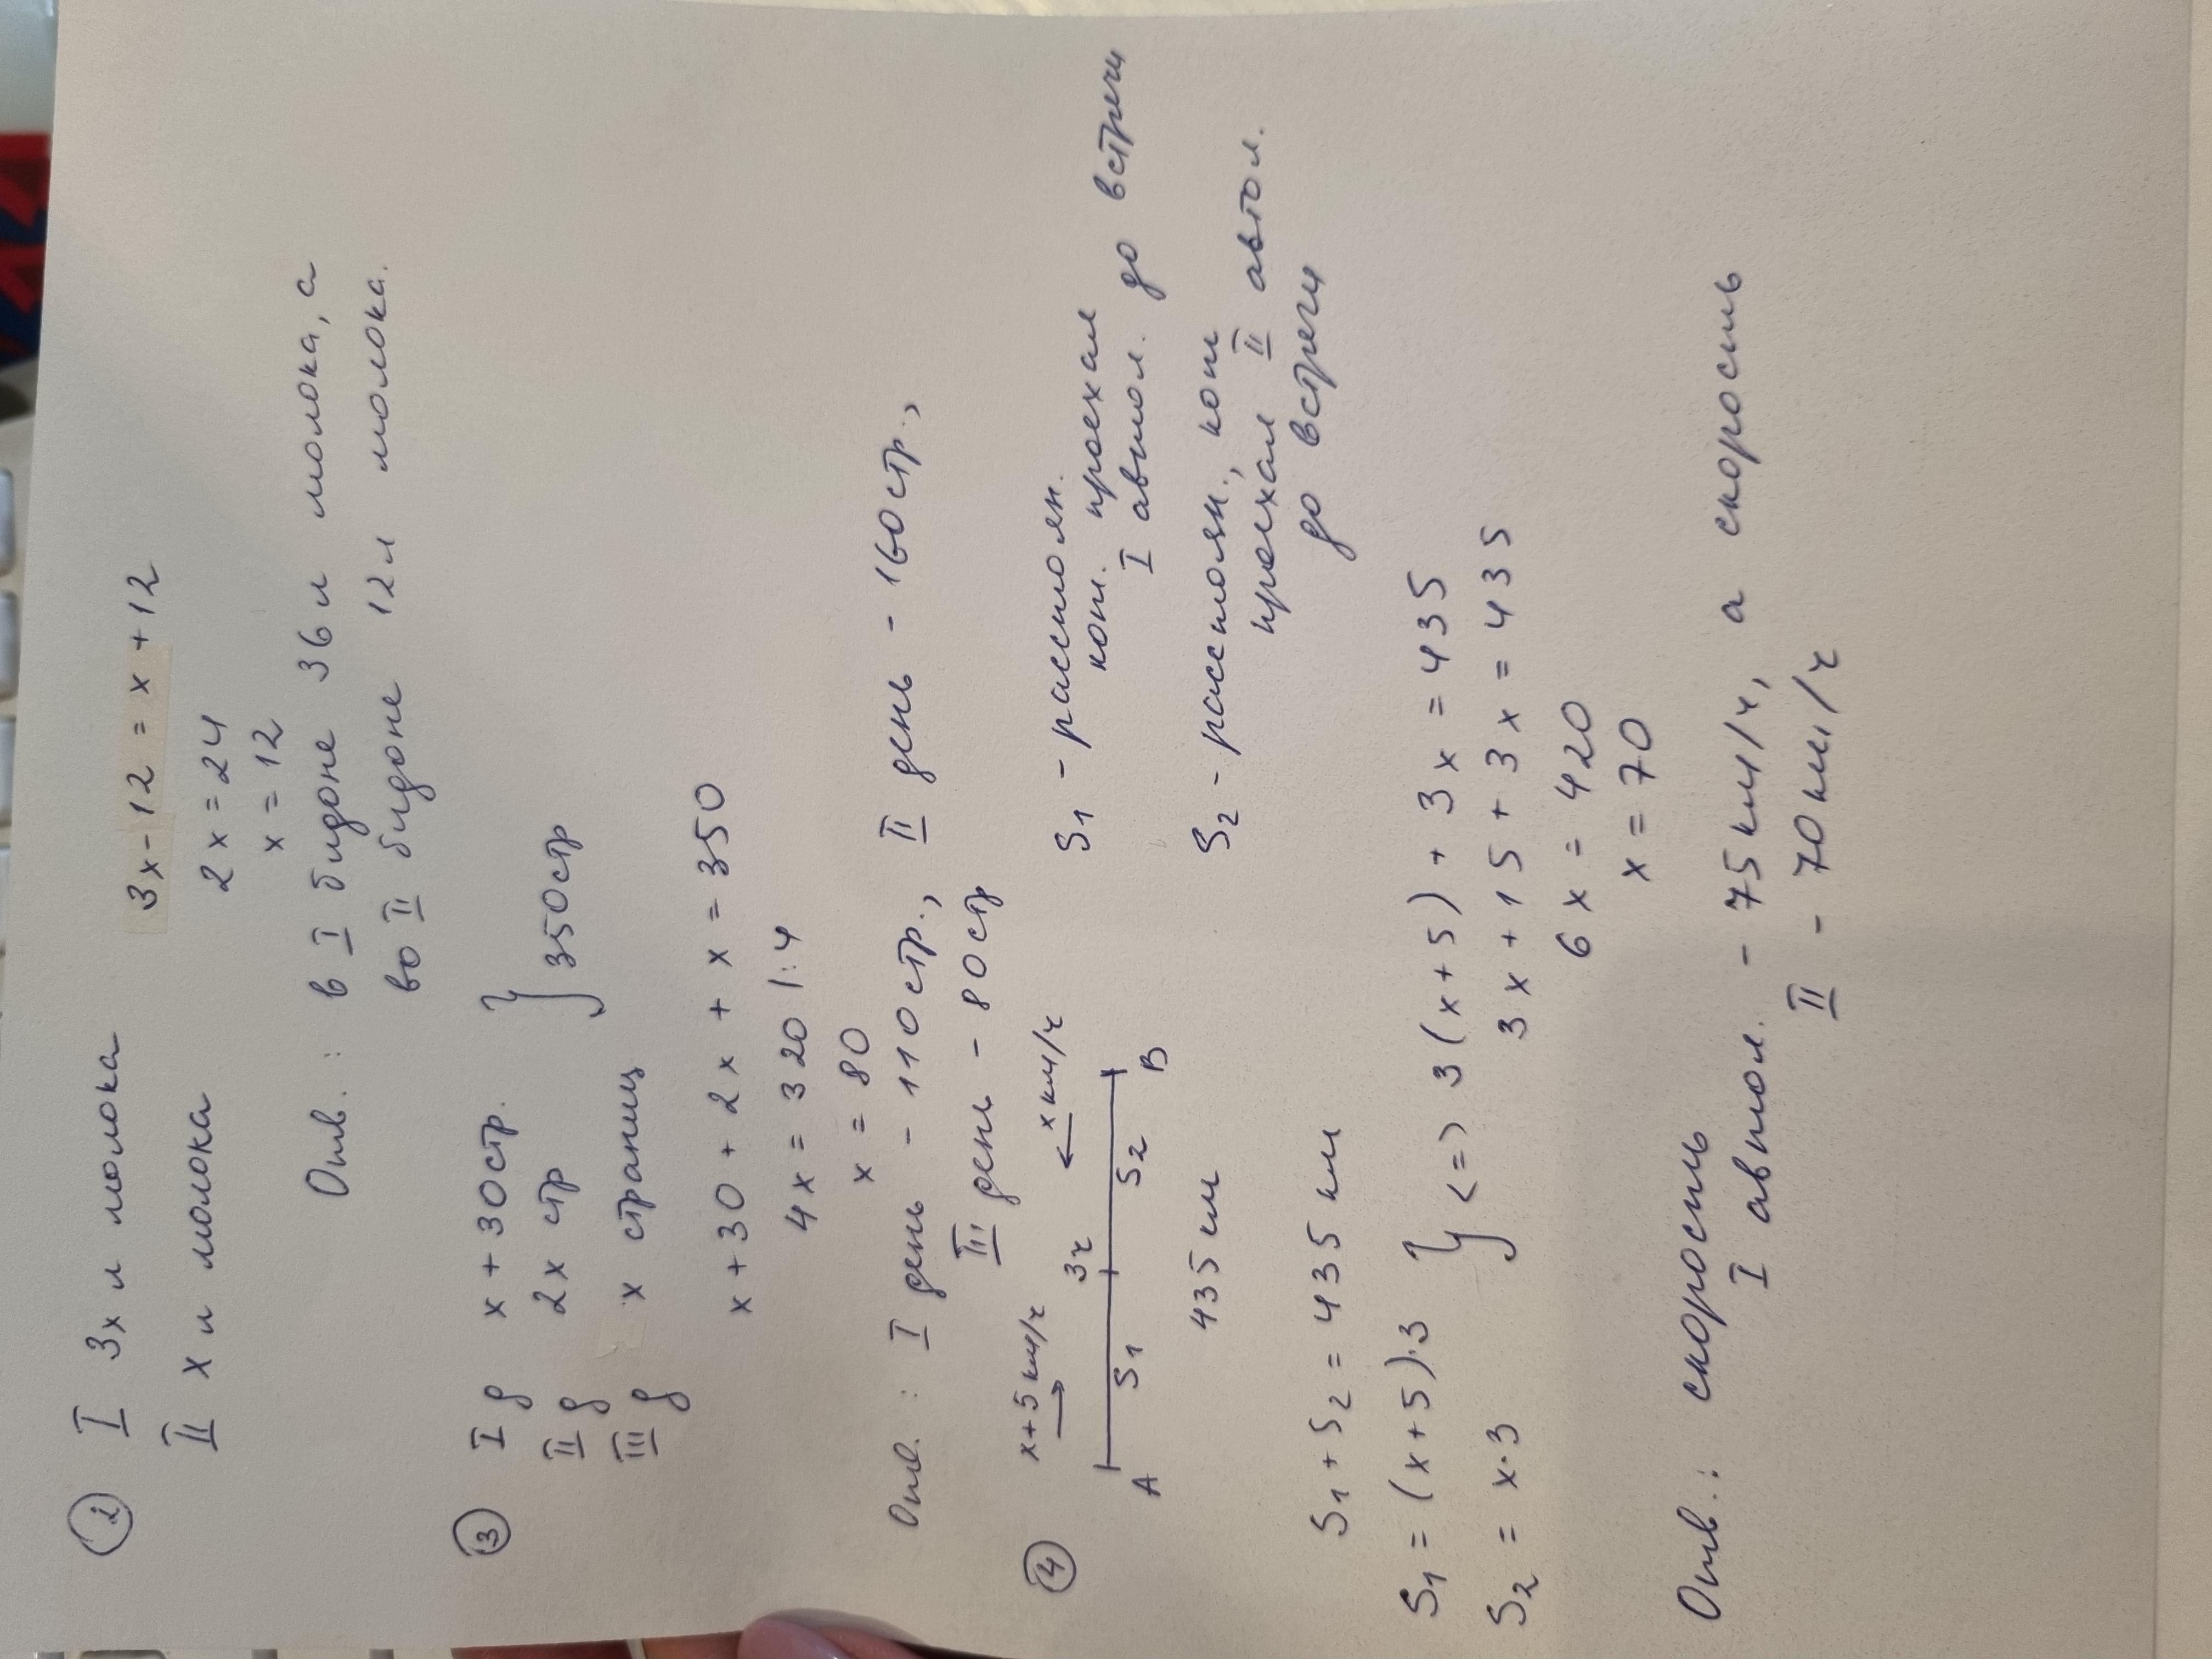 ② I 3x л молока
3x - 12 = x + 12
II x л молока
2x = 24
x = 12
Отв.: в I бидоне 36 л молока, а
во II бидоне 12 л молока.
③ I д x + 30 стр.
II д 2x стр
III д x страниц
} 350 стр
x + 30 + 2x + x = 350
4x = 320 |:4
x = 80
Отв.: I день - 110 стр., II день - 160 стр.,
III день - 80 стр
④ x+5 км/ч 3ч x км/ч
A S1 S2 B
435 км
S1 - расстоян.
кот. проехал
I автом. до встречи
S2 - расстоян., кот
проехал II автом.
до встречи
S1 + S2 = 435 км
S1 = (x+5)·3
S2 = x·3
} <=> 3(x+5) + 3x = 435
3x + 15 + 3x = 435
6x = 420
x = 70
Отв.: скорость
I автом. - 75 км/ч, а скорость
II - 70 км/ч